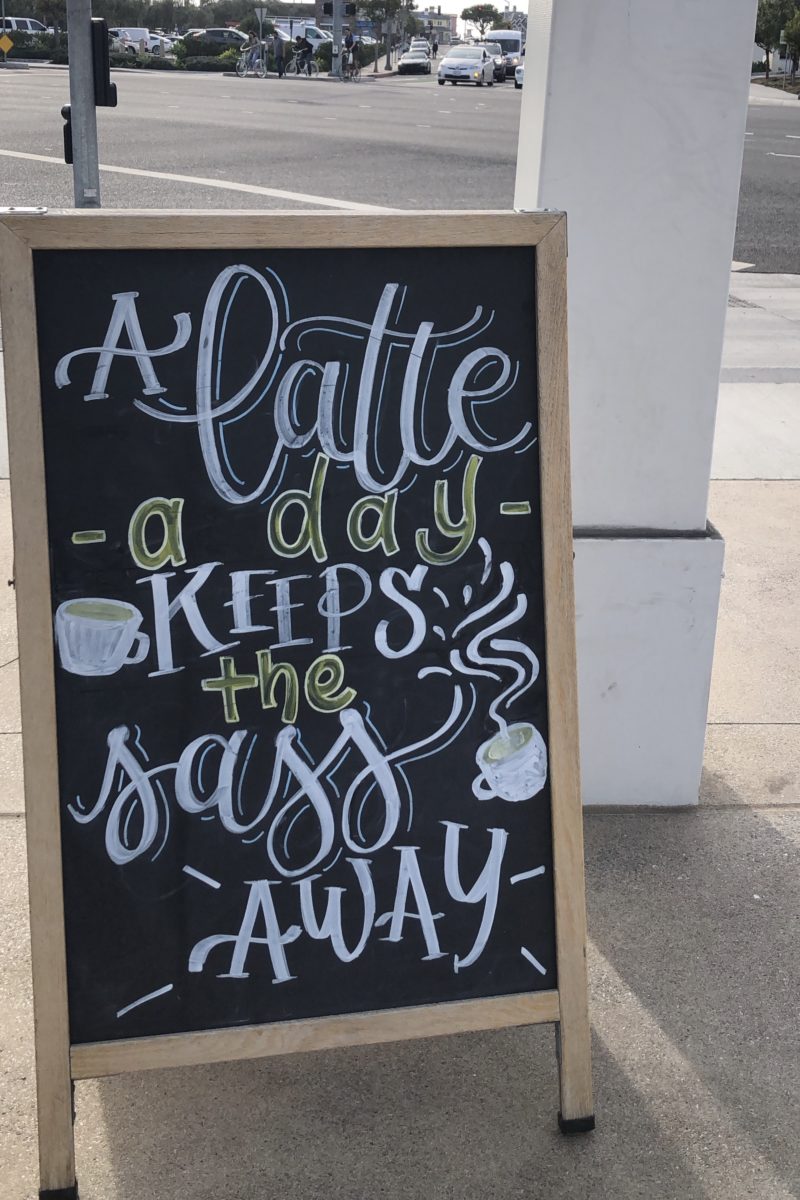 A latte
- a day -
KEEPS
the
sass
AWAY